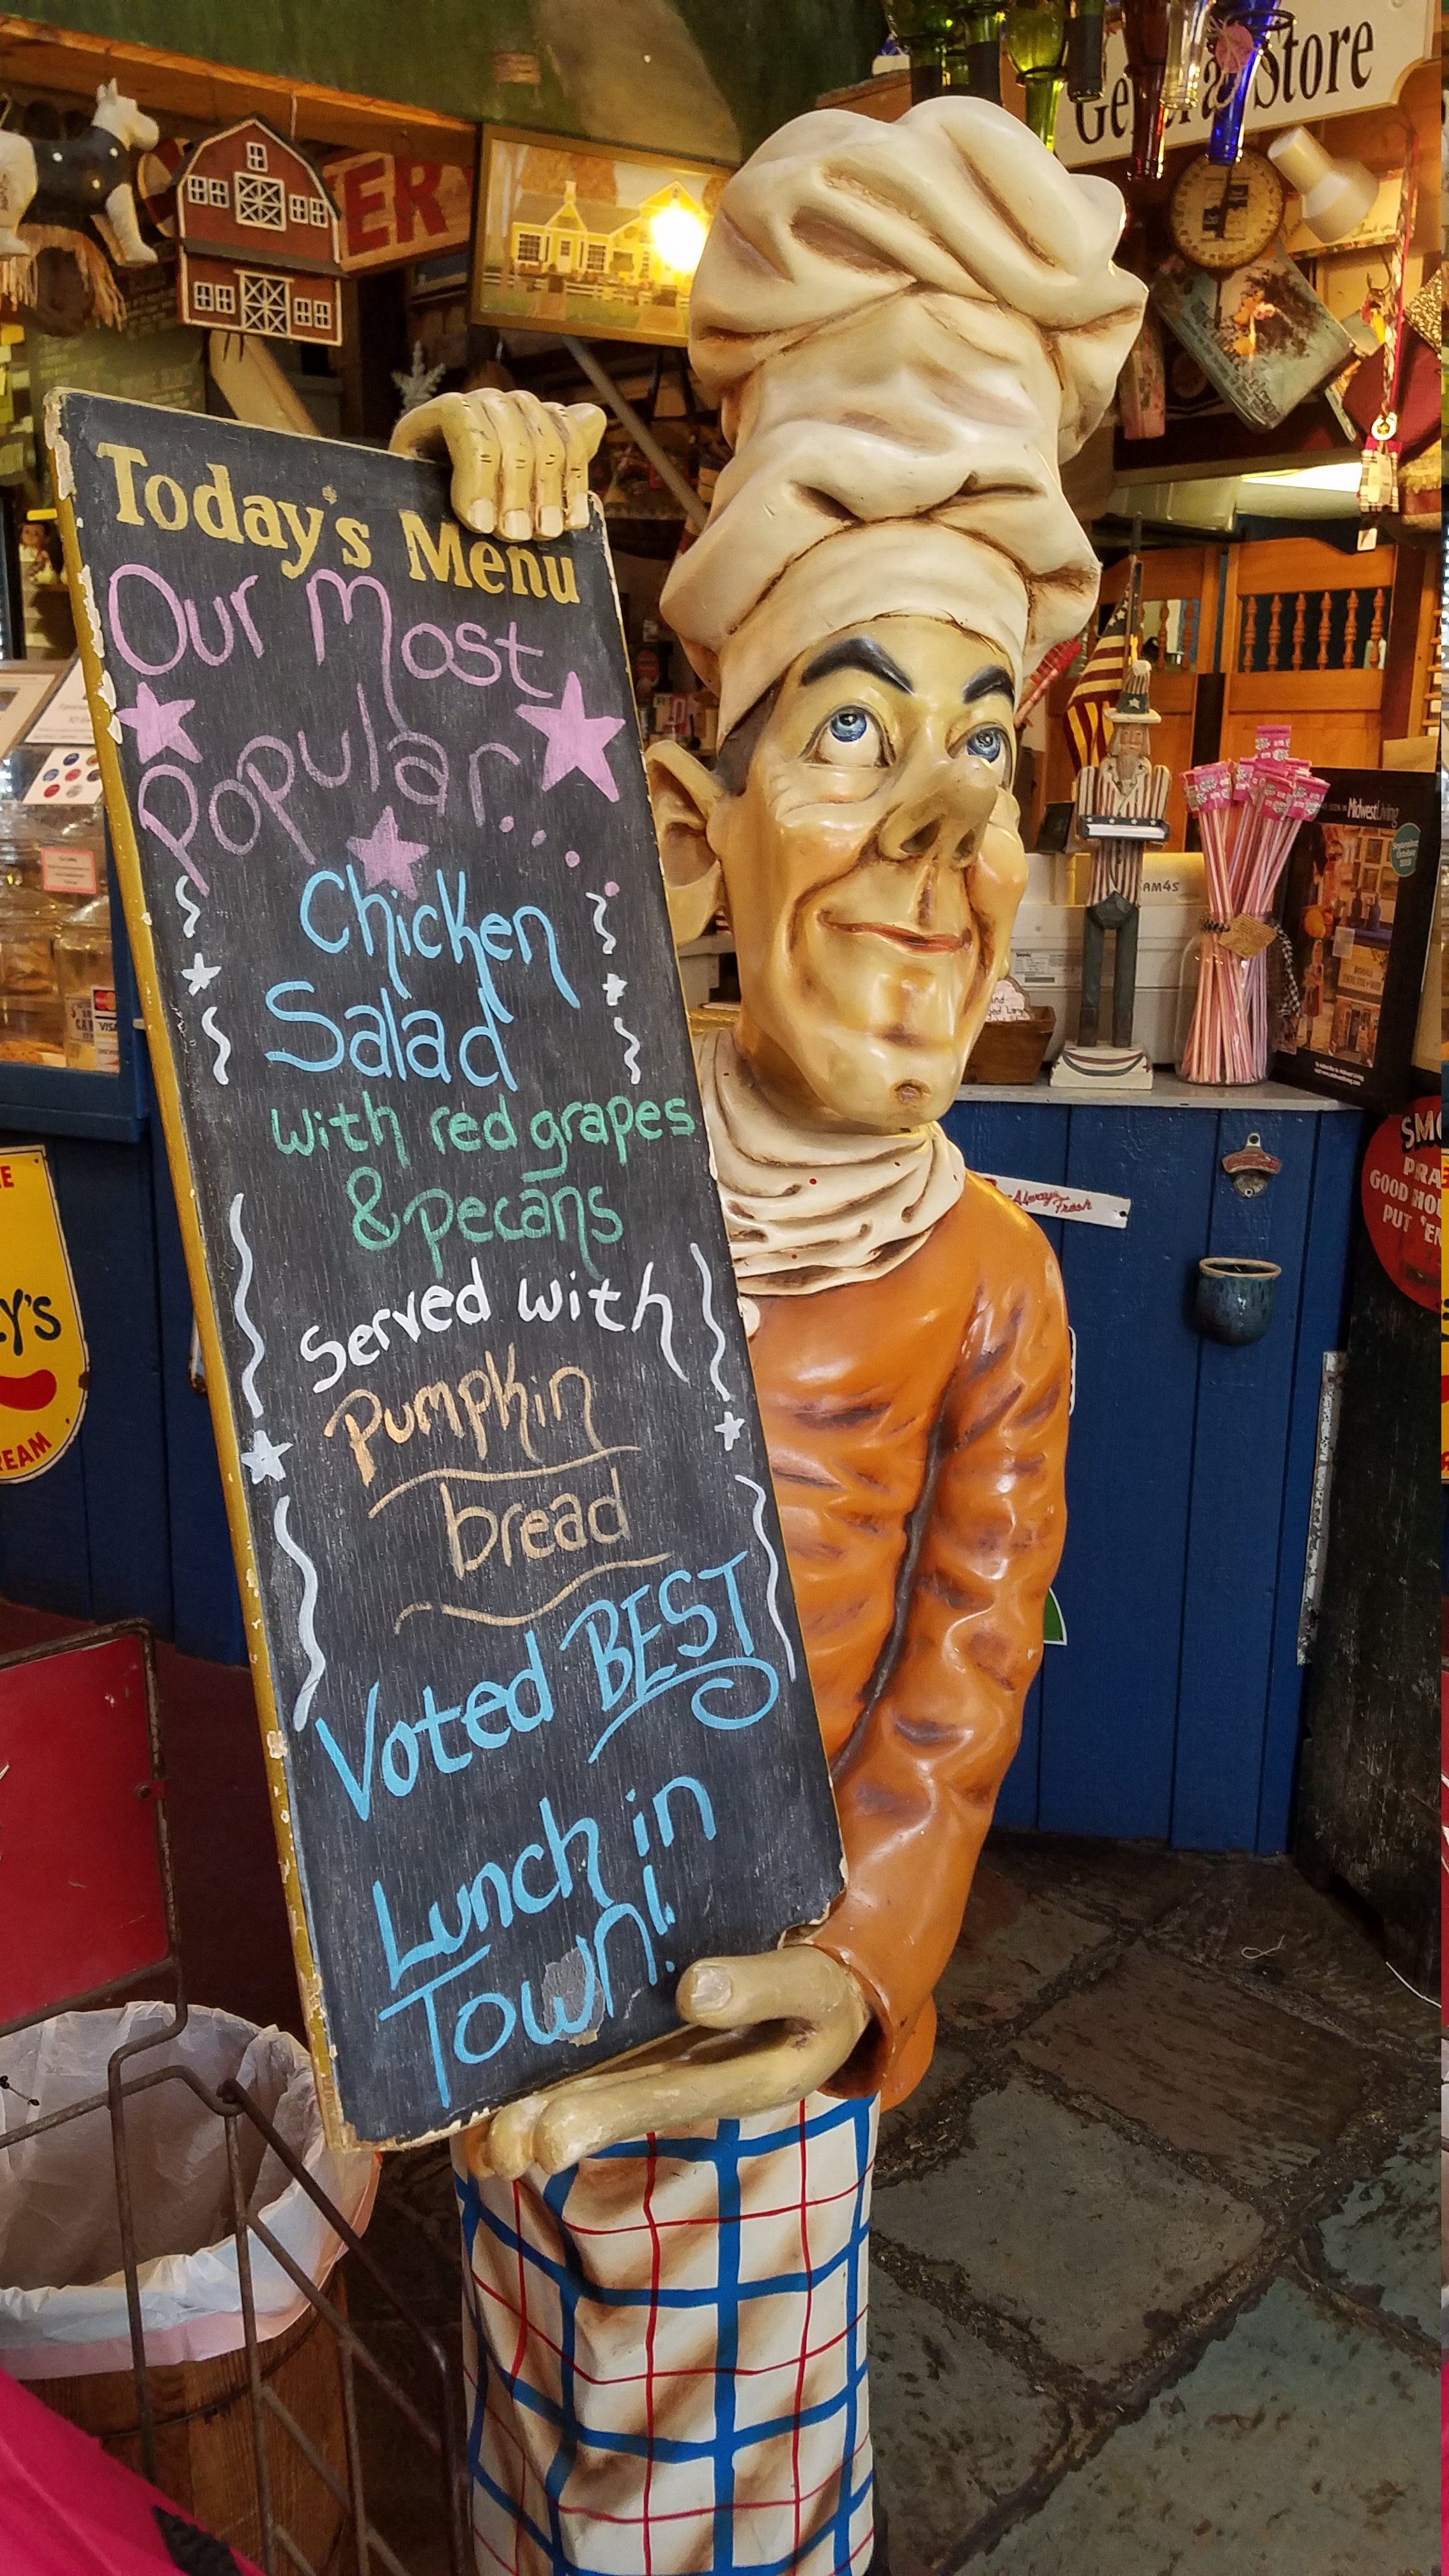 General Store
ERY
Today's Menu
Our Most
Popular...
Chicken
Salad
with red grapes
& pecans
Served with
Pumpkin
bread
Voted BEST
Lunch in
Town!
AM4S
Midwest Living
Always
Fresh
VISA
SMO
PRA
GOOD HO
PUT 'EM
Y'S
REAM